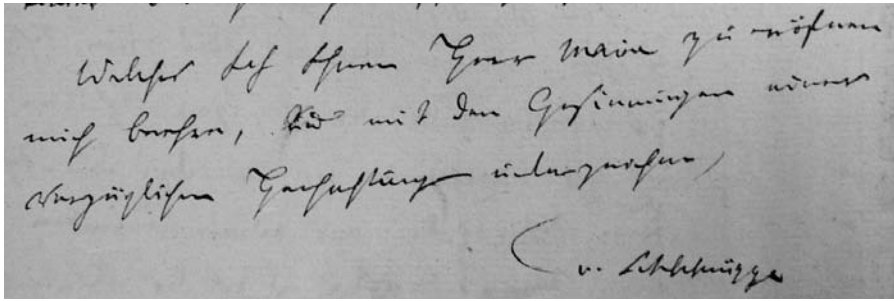 Welches Ich Ihnen Herr Maire zu eröfnen
mich beehre, und mit den Gesinnungen einer
vorzüglichen Hochachtung unterzeichne,
v.